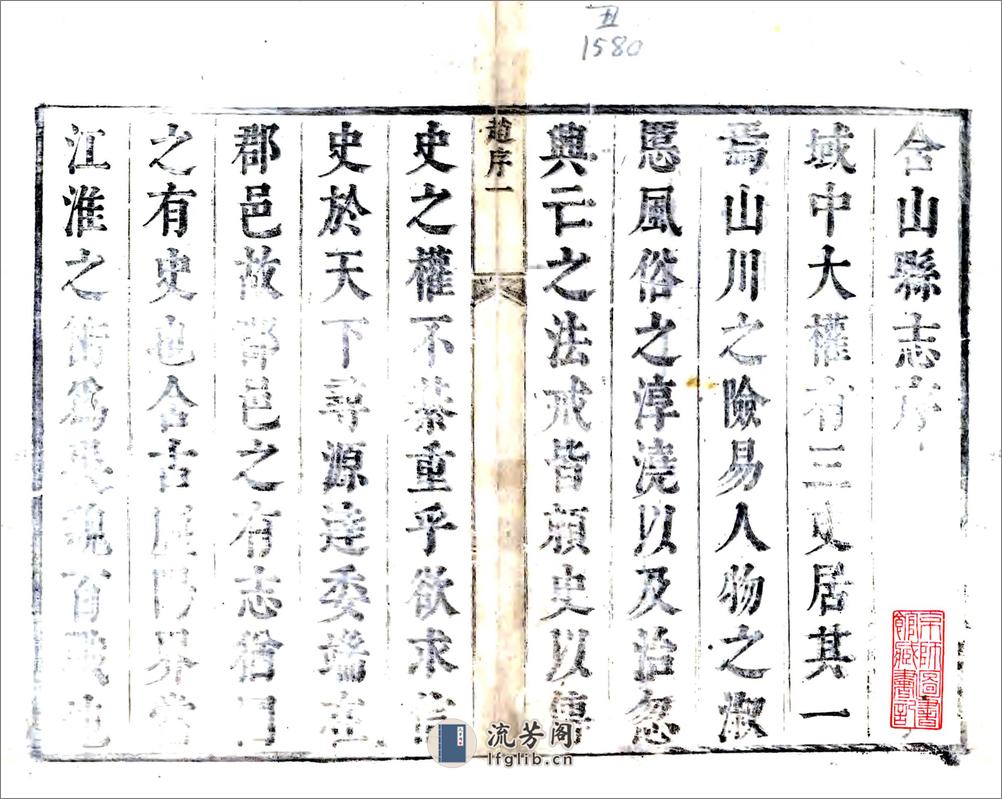 丑
1580
含山縣志序
域中大權有三史居其一
焉山川之險易人物之淑
慝風俗之淳澆以及治忽
興亡之法戒皆賴史以傳
趙序一
史之權不綦重乎欲求信
史於天下尋源達委端在
郡邑故郡邑之有志猶國
之有史也含古歷陽界當
江淮之衝為吳魏百戰地
京師圖書館藏書記
流芳阁
lfglib.cn